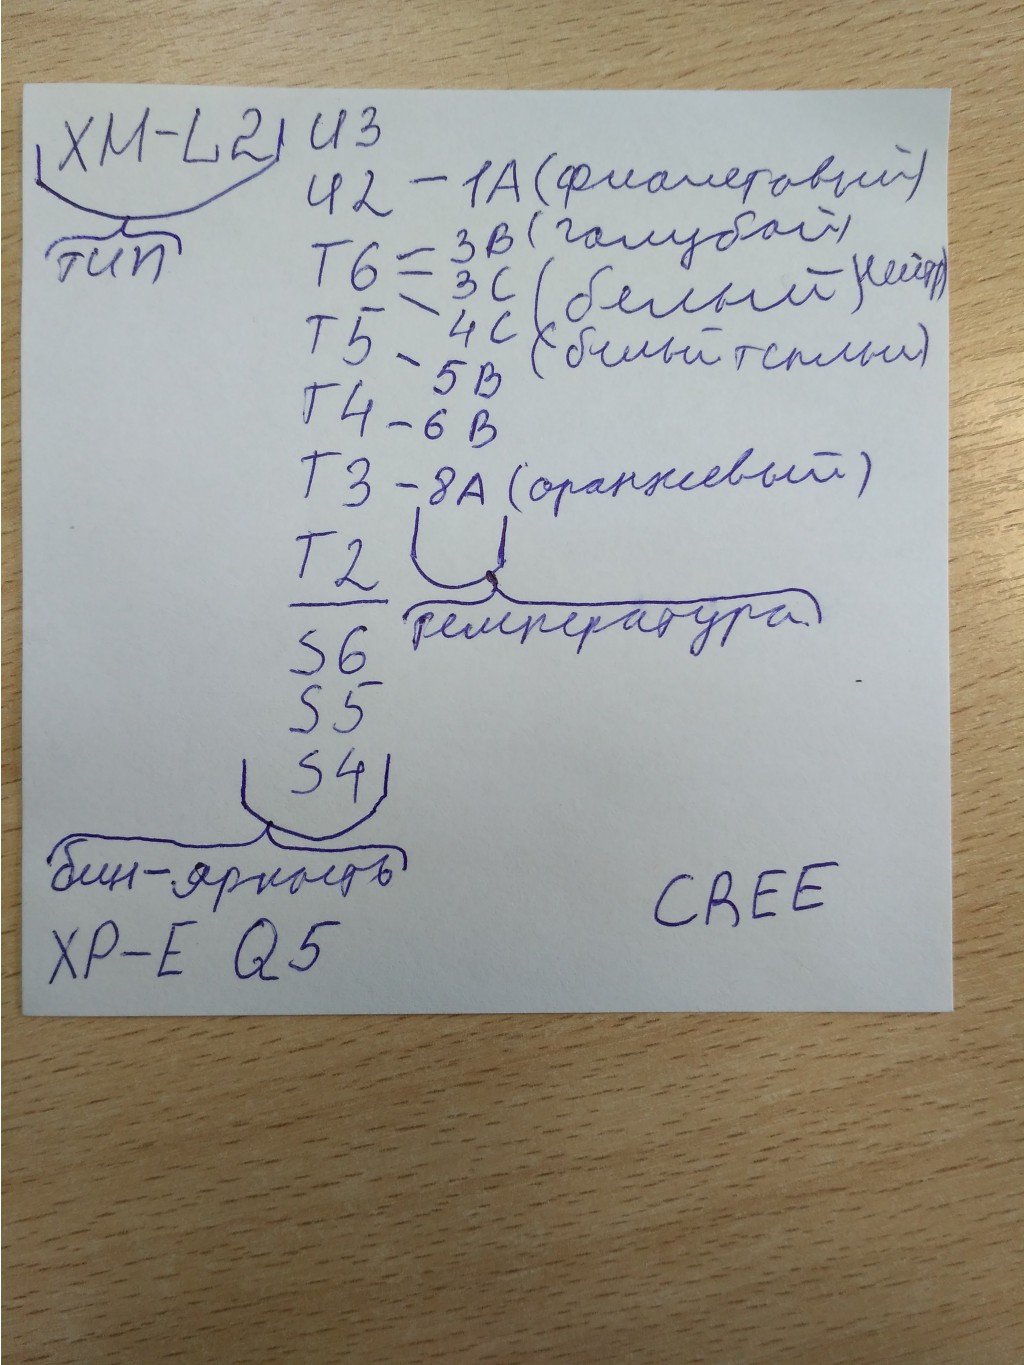 XM-L2 U3
тип
U2 - 1A (фиолетовый)
T6 = 3B (голубой)
3C (белый) нейтр
T5 4C (белый теплый)
5B
T4 - 6B
T3 - 8A (оранжевый)
T2
температура
S6
S5
S4
бин-яркость
XP-E Q5
CREE